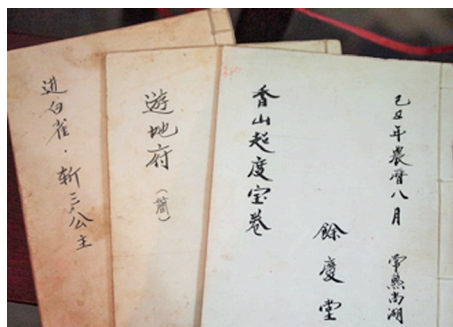 己丑年農曆八月 常熟尚湖
餘慶堂
香山超度宝卷
遊地府（簡）
进白雀·斩三公主